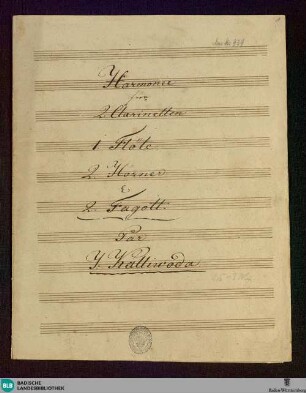 Harmonie
für
2 Clarinetten
1 Flöte
2 Hörner
&
2 Fagott.
Par
J. Kalliwoda
BLB
BADISCHE
LANDESBIBLIOTHEK
Baden-Württemberg